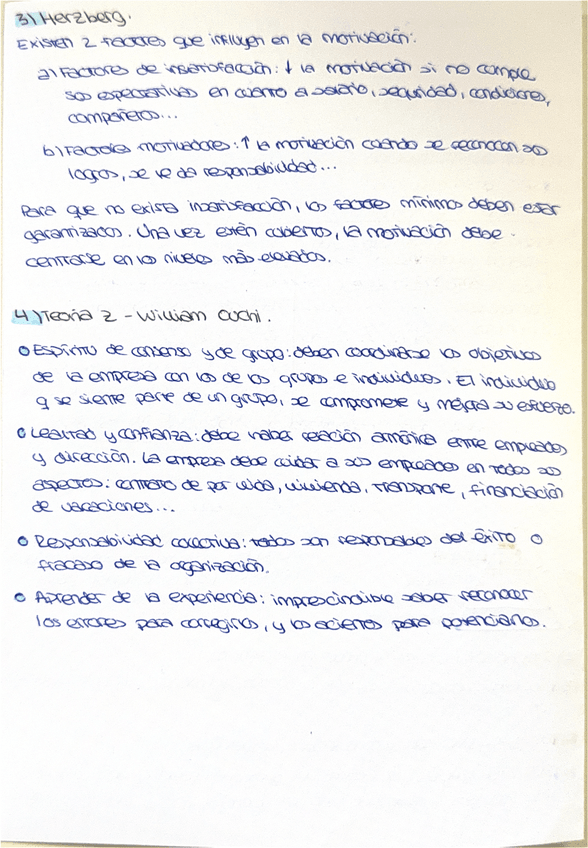 3) Herzberg.
Existen 2 factores que influyen en la motivación:
a) Factores de insatisfacción: ↓ la motivación si no cumple
sus expectativas en cuanto a salario, seguridad, condiciones,
compañeros...
b) Factores motivadores: ↑ la motivación cuando se reconocen sus
logros, se le da responsabilidad...
Para que no exista insatisfacción, los factores mínimos deben estar
garantizados. Una vez estén cubiertos, la motivación debe
centrarse en los niveles más elevados.
4) Teoría Z - William Ouchi.
Espíritu de consenso y de grupo: deben coordinarse los objetivos
de la empresa con los de los grupos e individuos. El individuo
q se siente parte de un grupo, se compromete y mejora su esfuerzo.
Lealtad y confianza: debe haber relación armónica entre empleados
y dirección. La empresa debe cuidar a sus empleados en todos sus
aspectos: contrato de por vida, vivienda, transporte, financiación
de vacaciones...
Responsabilidad colectiva: todos son responsables del éxito o
fracaso de la organización.
Aprender de la experiencia: imprescindible saber reconocer
los errores para corregirlos, y los aciertos para potenciarlos.